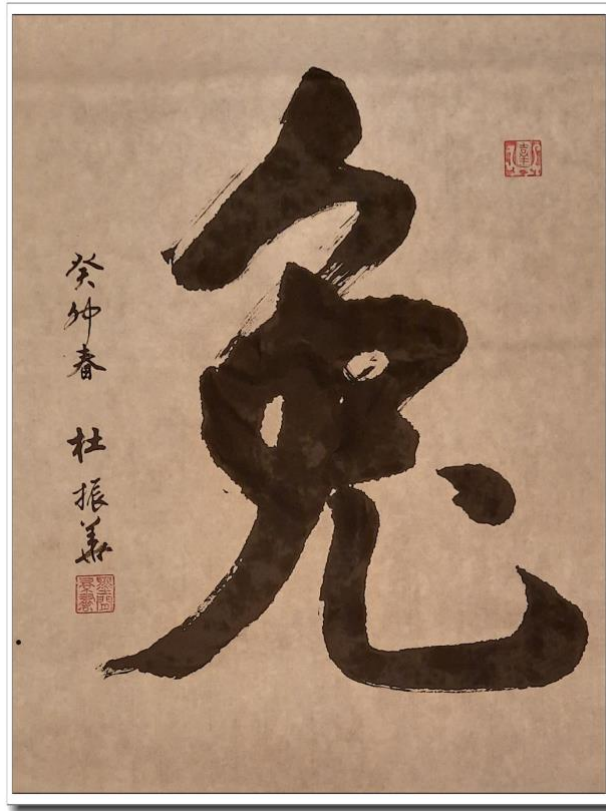 兔
癸卯春 杜振華